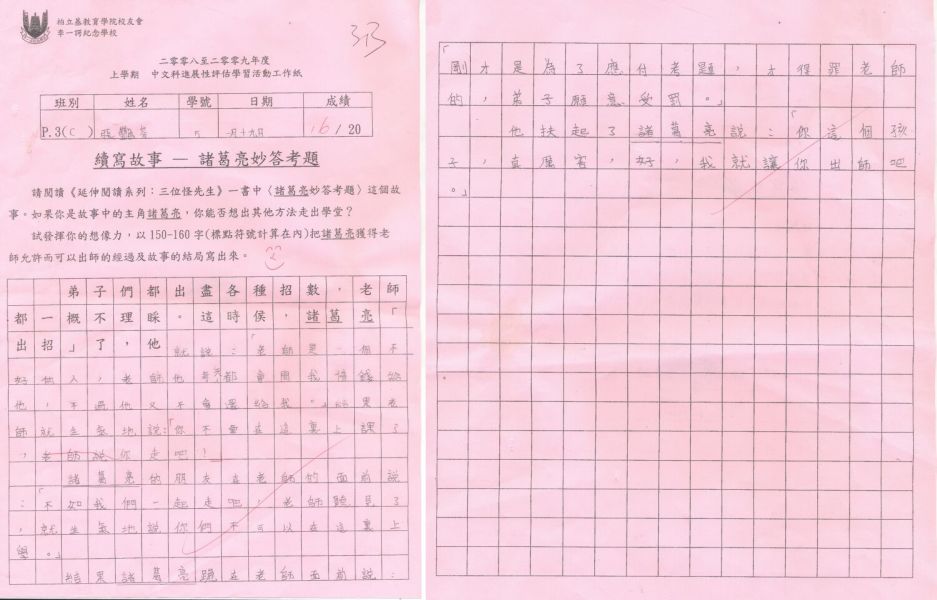 柏立基教育學院校友會
李一諤紀念學校
二零零八至二零零九年度
上學期 中文科進展性評估學習活動工作紙
班別 姓名 學號 日期 成績
P.3(C) 5 一月十九日 16/20
續寫故事 — 諸葛亮妙答考題
請閱讀《延伸閱讀系列：三位怪先生》一書中〈諸葛亮妙答考題〉這個故
事。如果你是故事中的主角諸葛亮，你能否想出其他方法走出學堂？
試發揮你的想像力，以 150-160 字(標點符號計算在內)把諸葛亮獲得老
師允許而可以出師的經過及故事的結局寫出來。
弟子們都出盡各種招數，老師
都一概不理睬。這時侯，諸葛亮「
出招」了，他就說：「老師是一個不
好的人，老師他每天都會問我借錢給
他，不過他又不會還給我。」結果老
師就生氣地說：「你不要在這裏上課了
，老師說你走吧！
諸葛亮的朋友在老師的面前說
：「不如我們一起走吧，老師聽見了
，就生氣地說你們不可以在這裏上
學。」
結果諸葛亮跪在老師面前說：
「剛才是為了應付考題，才得罪老師
的，弟子願意受罰。」
他扶起了諸葛亮說：「你這個孩
子，真厲害，好，我就讓你出師吧
。」